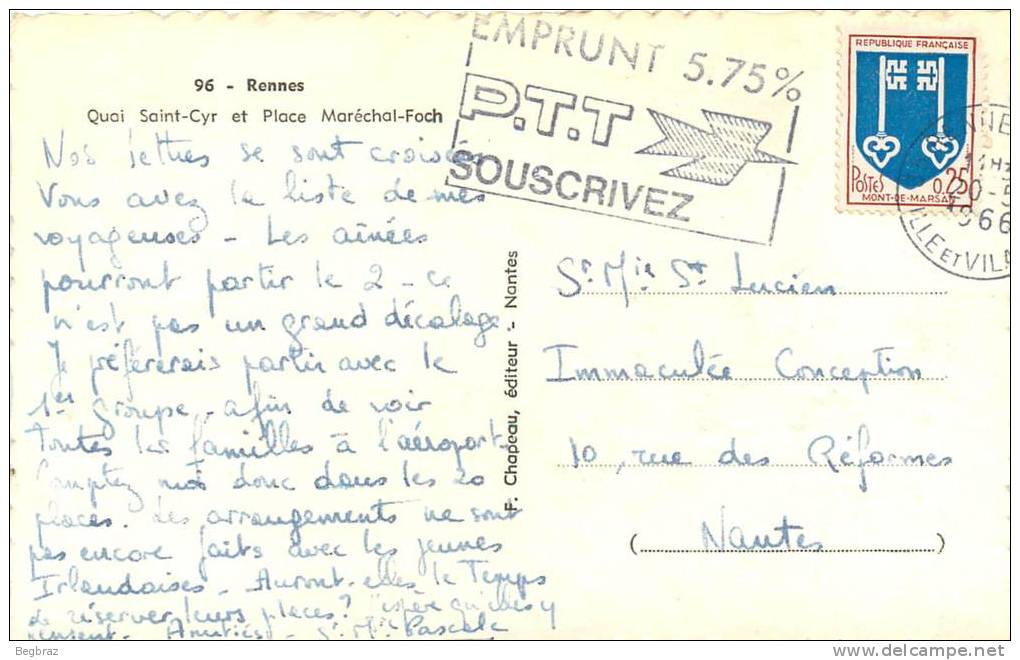 96 - Rennes
Quai Saint-Cyr et Place Maréchal-Foch
Nos lettres se sont croisées
Vous avez la liste de mes
voyageuses - Les aînées
pourront partir le 2 - ce
n'est pas un grand décalage.
Je préfèrerais partir avec le
1er groupe - afin de voir
toutes les familles à l'aéroport.
Comptez moi donc dans les 20
places. Les arrangements ne sont
pas encore faits avec les jeunes
Irlandaises - Auront-elles le temps
de réserver leurs places? J'espère qu'elles y
pensent - Amitiés - Sr Mie Pascale
F. Chapeau, éditeur - Nantes
EMPRUNT 5.75%
P.T.T
SOUSCRIVEZ
REPUBLIQUE FRANÇAISE
POSTES 0,25
MONT-DE-MARSAN
14H
1966
ILLE ET VIL
Sr Mie St Lucien
Immaculée Conception
10, rue des Réformes
(Nantes)
Begbraz
delcampe.net